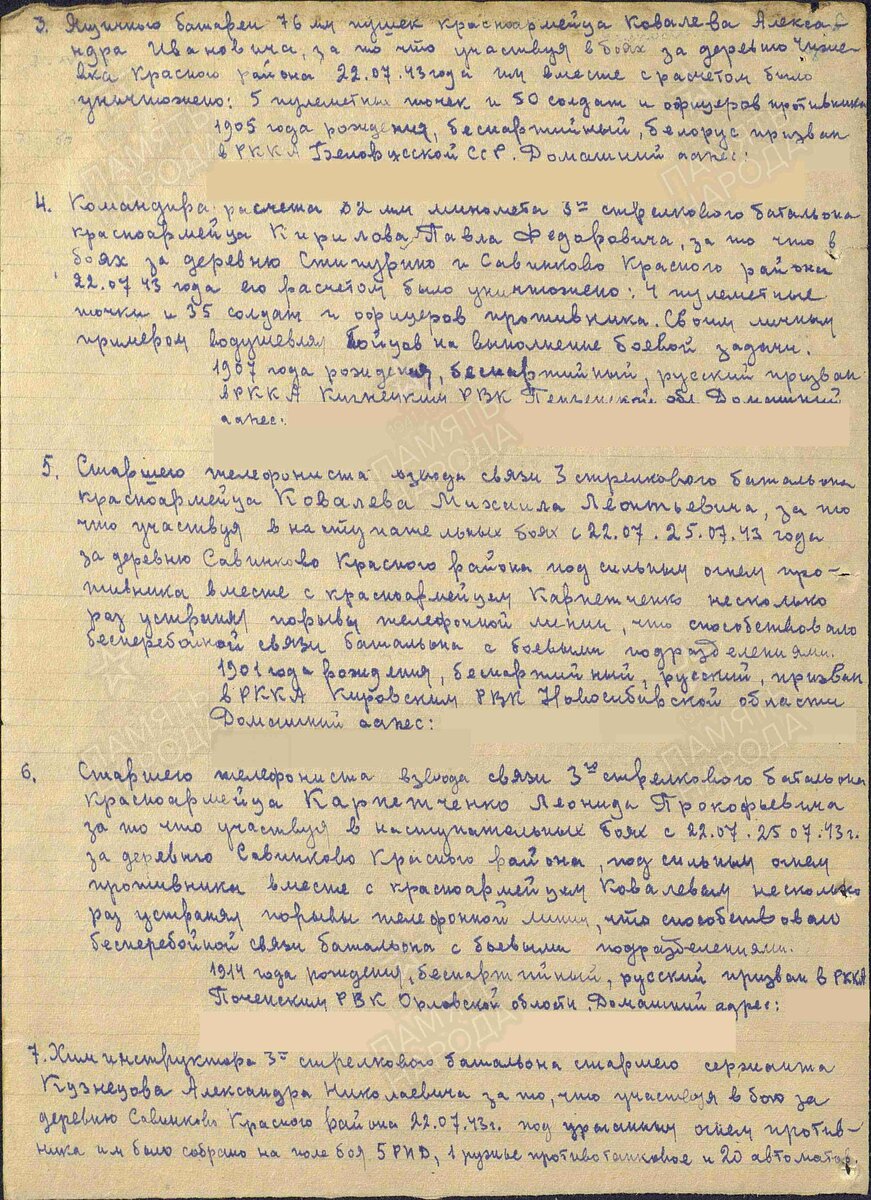 3. Ящичного батареи 76 мм пушек красноармейца Ковалева Алекса-
ндра Ивановича, за то что участвуя в боях за деревню
Красного района 22.07.43 года им вместе с расчетом было
уничтожено: 5 пулеметных точек и 50 солдат и офицеров противника
1905 года рождения, беспартийный, белорус призван
в РККА Беловусской ССР. Домашний адрес:
4. Командира расчета 82 мм миномета 3го стрелкового батальона
красноармейца Кирилова Павла Федоровича, за то что в
боях за деревню Стипурино и Савинково Красного района
22.07 43 года его расчетом было уничтожено: 4 пулеметные
точки и 35 солдат и офицеров противника. Своим личным
примером водушевлял бойцов на выполнение боевой задачи.
1907 года рождения, беспартийный, русский призван
в РККА Кузнецким РВК Пензенской обл. Домашний
адрес:
5. Старшего телефониста взвода связи 3 стрелкового батальона
красноармейца Ковалева Михаила Леонтьевича, за то
что участвуя в наступательных боях с 22.07. 25.07.43 года
за деревню Савинково Красного района под сильным огнем про-
тивника вместе с красноармейцем Карпетченко несколько
раз устранял порывы телефонной линии, что способствовало
бесперебойной связи батальона с боевыми подразделениями.
1901 года рождения, беспартийный, русский, призван
в РККА Кировским РВК Новосибирской области
Домашний адрес:
6. Старшего телефониста взвода связи 3го стрелкового батальона
красноармейца Карпетченко Леонида Прокофьевича
за то что участвуя в наступательных боях с 22.07. 25 07.43 г.
за деревню Савинково Красного района, под сильным огнем
противника вместе с красноармейцем Ковалевым несколько
раз устранял порывы телефонной линии, что способствовало
бесперебойной связи батальона с боевыми подразделениями.
1914 года рождения, беспартийный, русский призван в РККА
Почепским РВК Орловской области. Домашний адрес:
7. Химинструктора 3го стрелкового батальона старшего сержанта
Кузнецова Александра Николаевича за то, что участвуя в бою за
деревню Савинково Красного района 22.07.43г. под ураганным огнем против-
ника им было собрано на поле боя 5 РПД, 1 ружье противотанковое и 20 автоматов.
ПАМЯТЬ НАРОДА